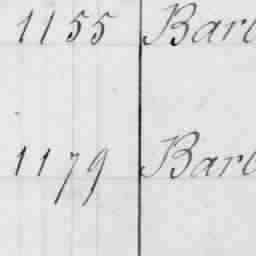 1155 Barl
1179 Barl